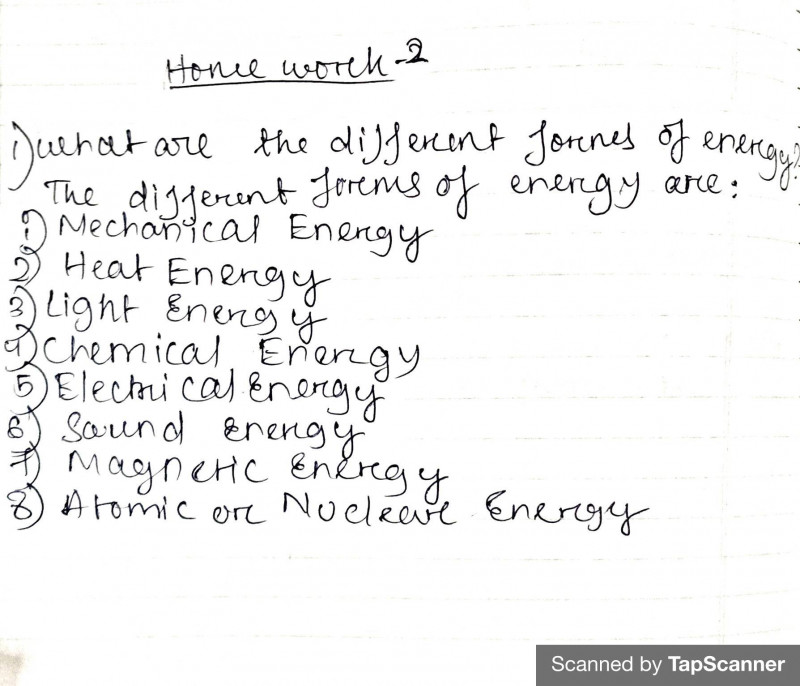 Home work-2
1) what are the different forms of energy?
The different forms of energy are:
1) Mechanical Energy
2) Heat Energy
3) Light Energy
4) Chemical Energy
5) Electrical Energy
6) Sound energy
7) Magnetic Energy
8) Atomic or Nuclear Energy
Scanned by TapScanner